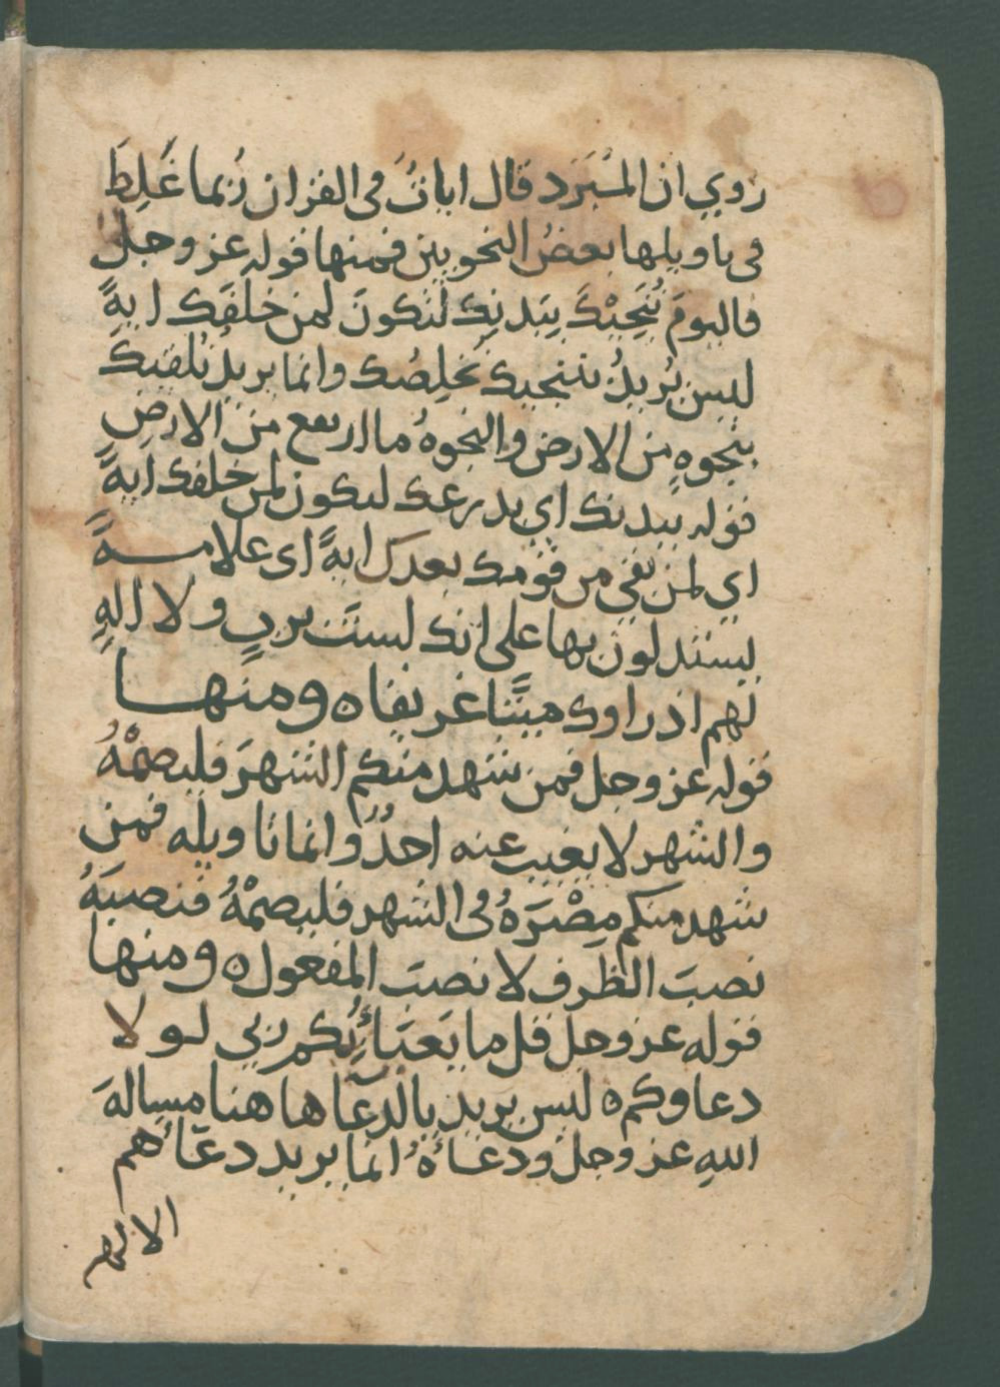 روي ان المُبَرَّد قال ايات في القران رُبما غَلِطَ
في تاويلها بعضُ النحويين فمنها قوله عز وجل
فاليومَ نُنَجِّيْكَ بِبَدنِك لتكونَ لمن خلفَك ايةً
ليس يُريدُ بننجيك نُخلِصُك وانما يريدُ نُلقيك
بنجوهٍ من الارض والنجوهُ ما ارتفع من الارضِ
قوله ببدنك اي بدرعك لتكون لمن خلفك ايةً
اي لمن بقي من قومك بعدك ايةً اى علامــــةً
يستدلون بها على انك لستَ بربٍ ولا الهٍ
لهم اذ راوك ميتًا غريقاه ومنهـــا
قوله عز وجل فمن شهد منكم الشهرَ فليصمْهُ
والشهر لا يغيب عنه احدٌ وانما تاويله فمن
شهد منكم مِصْرَهُ في الشهر فليصمْهُ فنصبَهُ
نصبَ الظرف لا نصبَ المفعول ه ومنها
قوله عز وجل قل ما يَعبَأُ بكم ربي لـو لا
دعاوكم ه ليس يريد بالدعَا هاهنا مسالةَ
اللهِ عز وجل ودعـاءَهُ انما يريد دعَاءهم
الا تهم